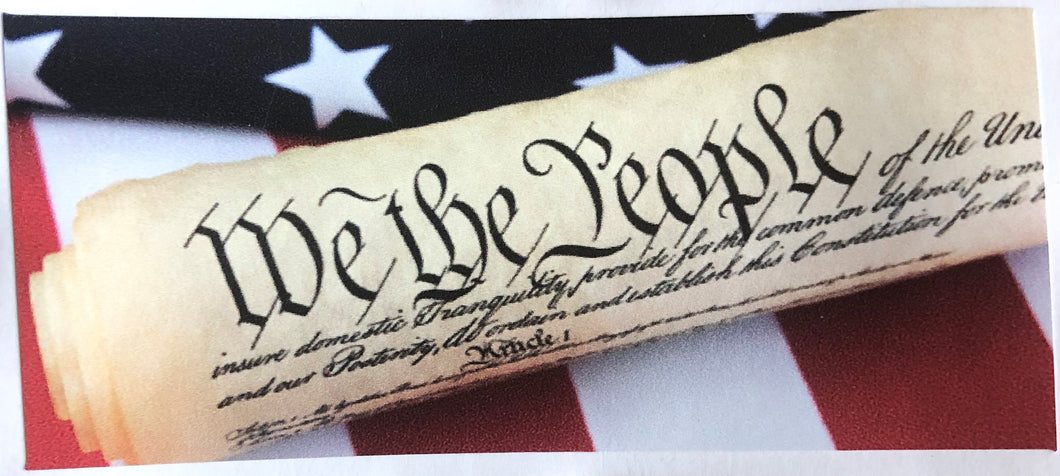 We the People of the Uni
insure domestic Tranquility, provide for the common defence, prom
and our Posterity, do ordain and establish this Constitution for the
Article 1